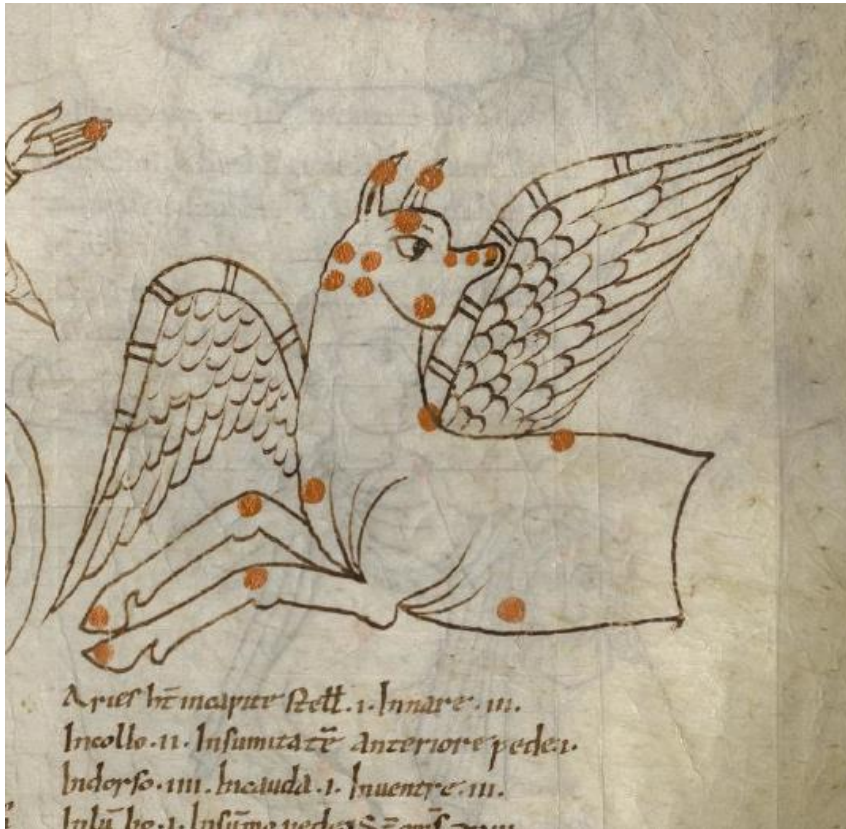 Aries ht̄ incapite stell̄ .i. Innare .iii.
Incollo .ii. Insumitatē anteriore pede .i.
Indorso .iiii. Incauda .i. Inuentre .iii.
Inlū bo .i. Insūmo pede